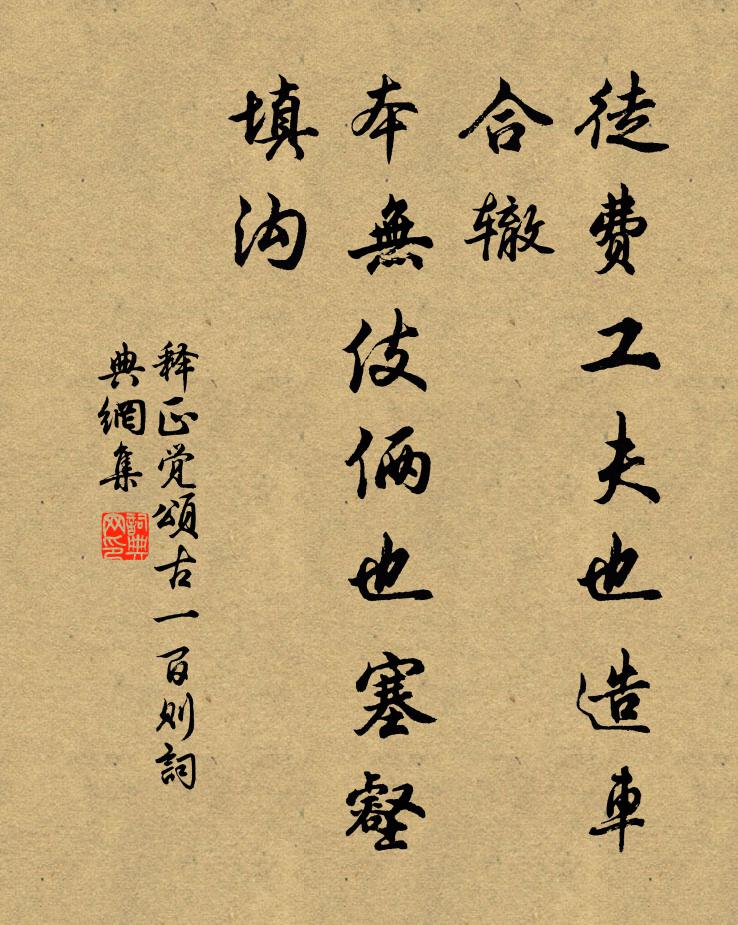 徒费工夫也造車
合辙
本無伎俩也塞壑
填沟
释正觉頌古一百则詞
典網集
詞典网印